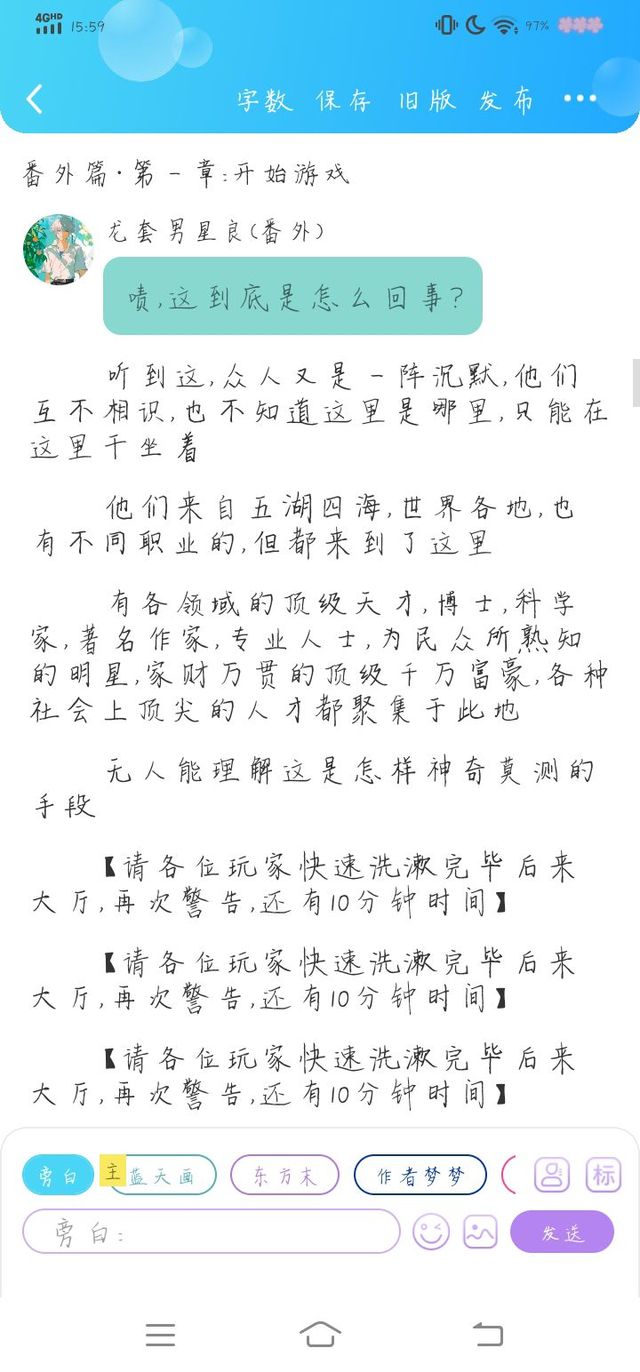 4GHD 15:59 97%
字数 保存 旧版 发布
番外篇·第一章:开始游戏
龙套男星良(番外)
啧,这到底是怎么回事?
听到这,众人又是一阵沉默,他们
互不相识,也不知道这里是哪里,只能在
这里干坐着
他们来自五湖四海,世界各地,也
有不同职业的,但都来到了这里
有各领域的顶级天才,博士,科学
家,著名作家,专业人士,为民众所熟知
的明星,家财万贯的顶级千万富豪,各种
社会上顶尖的人才都聚集于此地
无人能理解这是怎样神奇莫测的
手段
【请各位玩家快速洗漱完毕后来
大厅,再次警告,还有10分钟时间】
【请各位玩家快速洗漱完毕后来
大厅,再次警告,还有10分钟时间】
【请各位玩家快速洗漱完毕后来
大厅,再次警告,还有10分钟时间】
旁白 主 蓝天画 东方末 作者梦梦 标
旁白: 发送